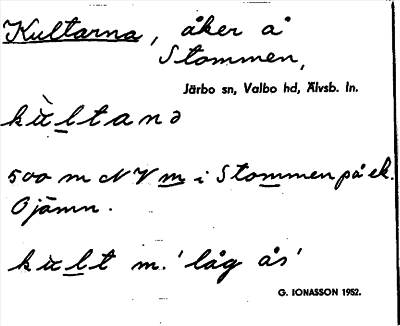 Kultarna, åker å
Stommen,
Järbo sn, Valbo hd, Älvsb. ln.
kùltanə
500 m NV m i Stommen på ek.
Ojämn.
kult m. 'låg ås'
G. IONASSON 1952.